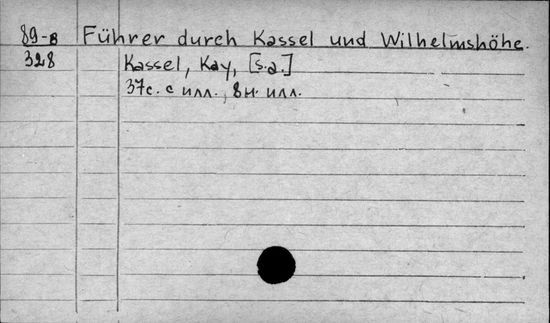 89-8 Führer durch Kassel und Wilhelmshöhe.
328 Kassel, Kay, [s.a.]
37с. с илл., 8н. илл.